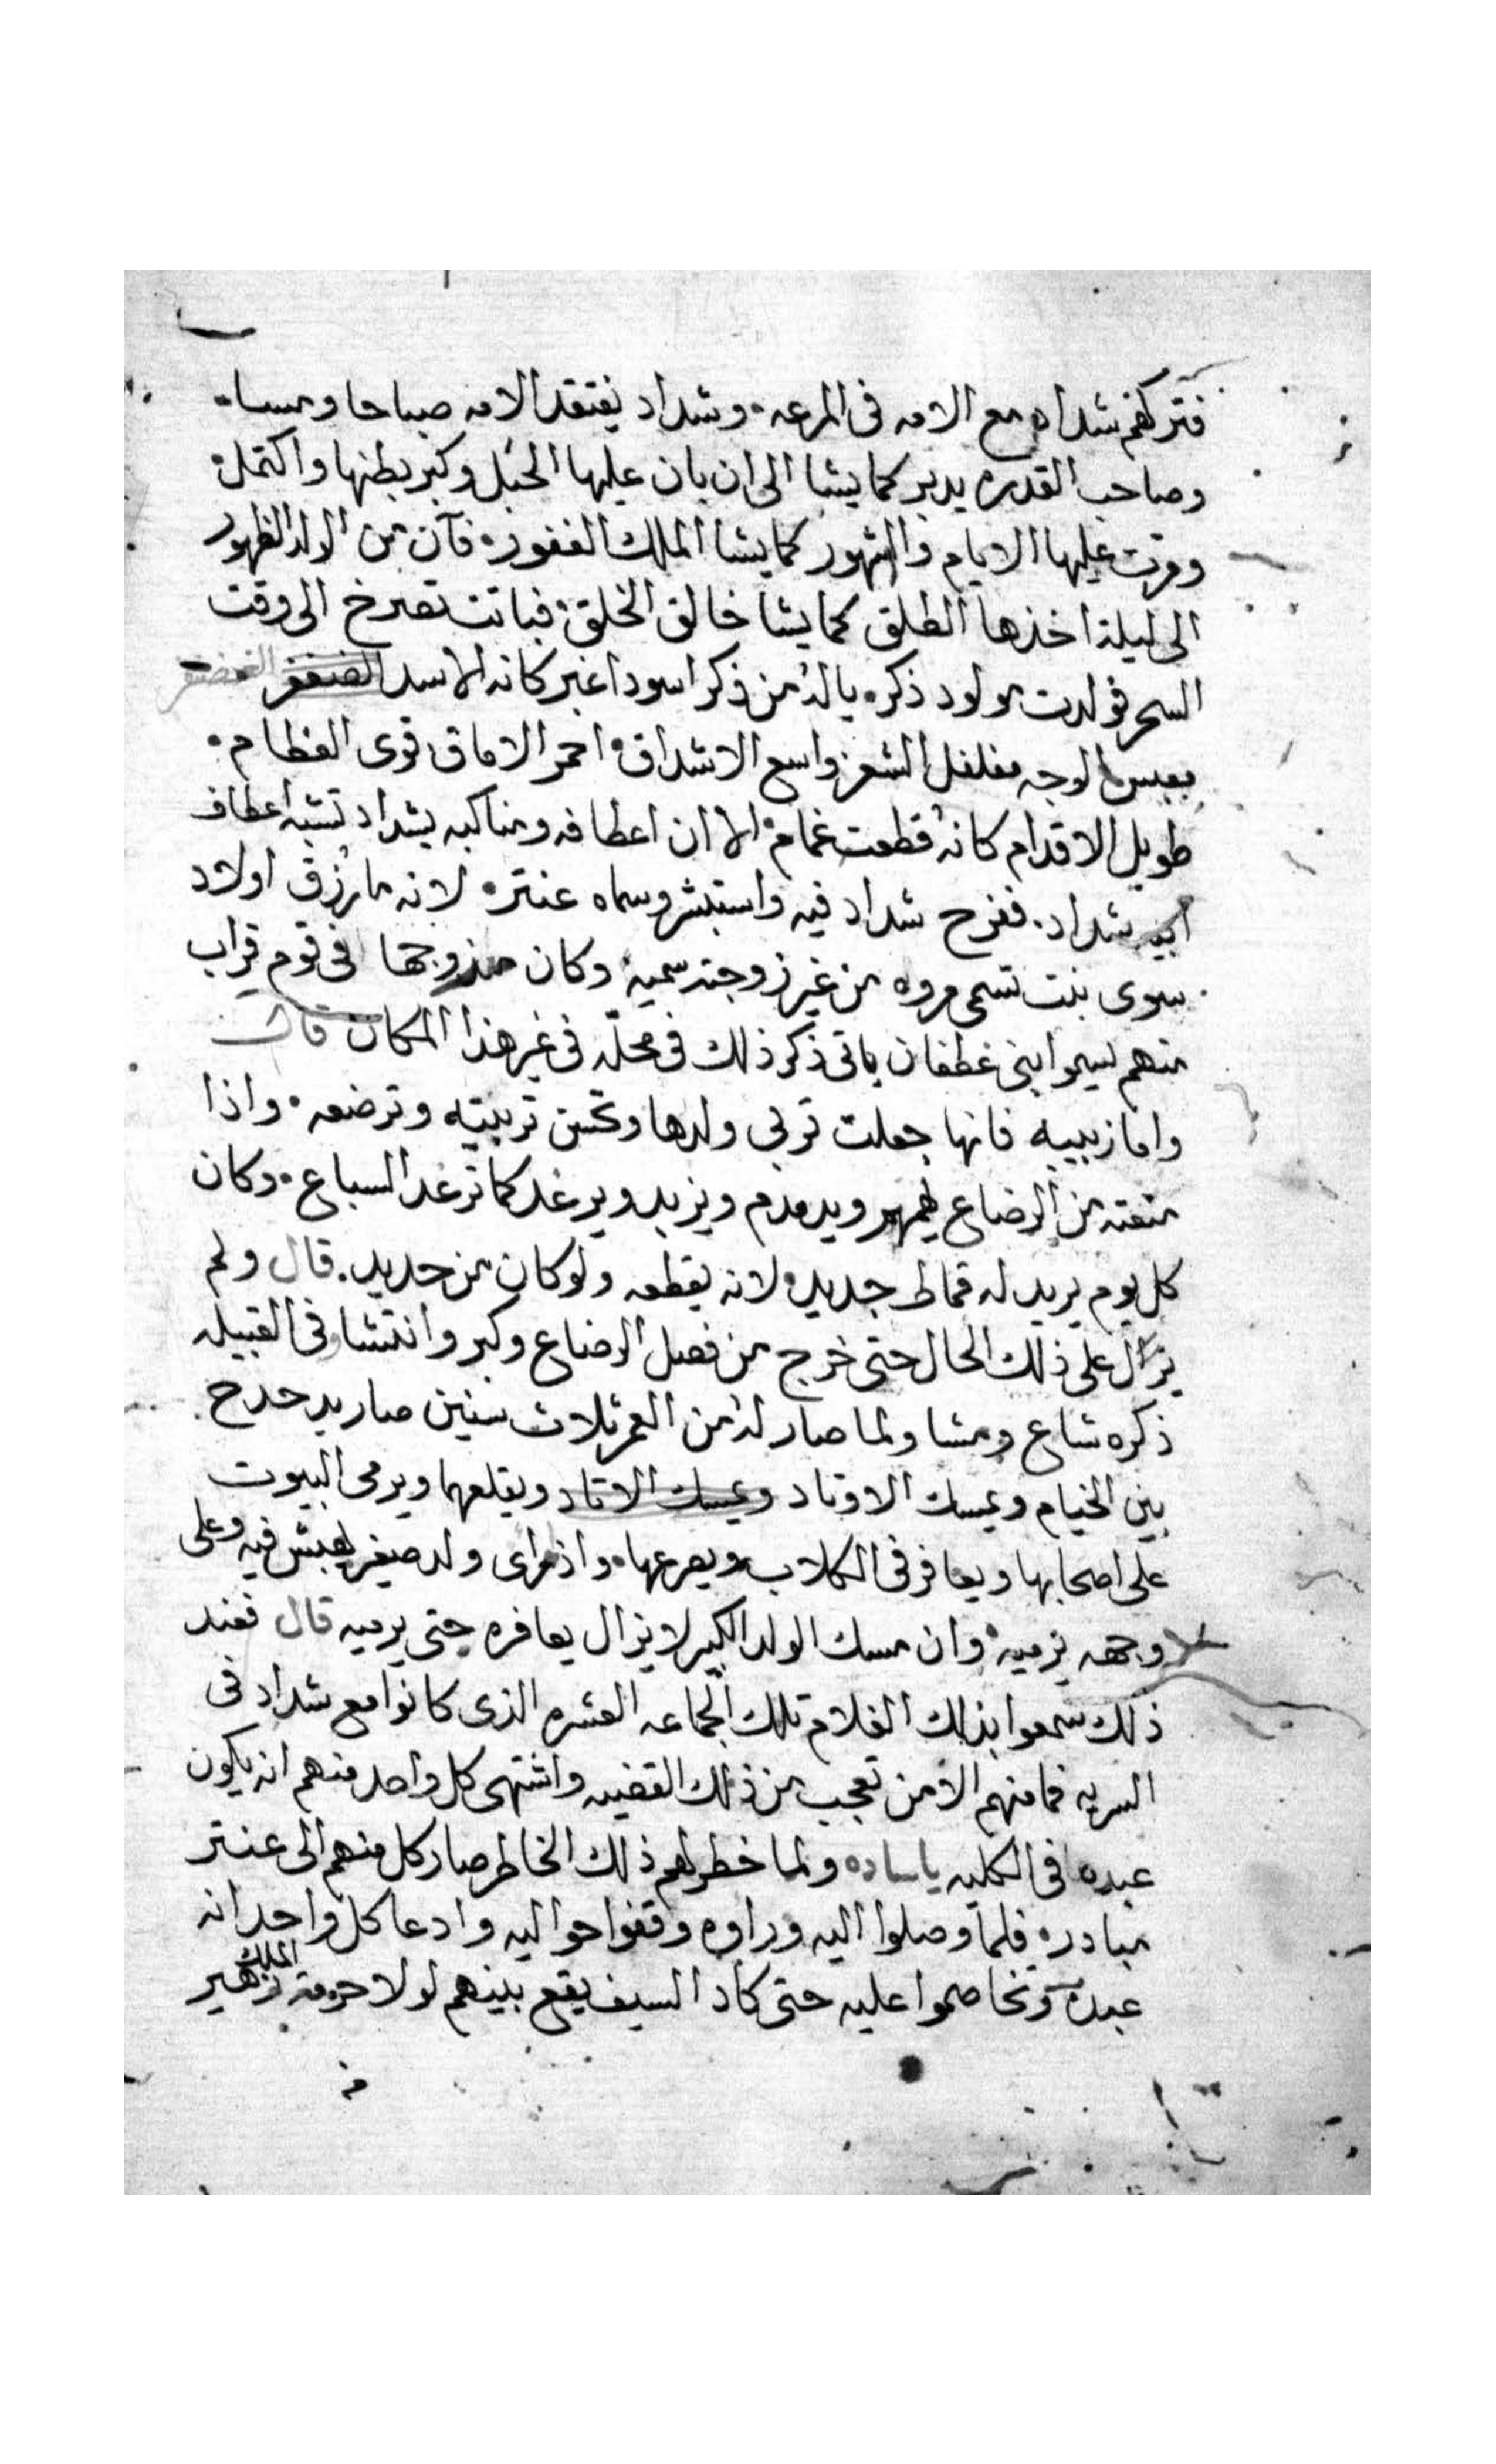 فتركهم شداد مع الامه فى المرعه وشداد يفتقد الامه صباحا ومسا
وصاحب القدره يدبر كما يشا الى ان بان عليها الحبل وكبر بطنها واكتمل
ومرت عليها الايام والشهور كما يشا الملك الغفور فآن من الولد الظهور
الى ليلة اخذها الطلق كما يشا خالق الخلق فباتت تصرخ الى وقت
السحر فولدت مولود ذكر يا له من ذكر اسود اغبر كانه الاسد الغضنفر
معبس الوجه مفلفل الشعر واسع الاشداق احمر الاماق قوى العظام
طويل الاقدام كانه قطعت غمام الا ان اعطافه ومناكبه بشداد تشبه اعطاف
ابيه شداد ففرح شداد فيه واستبشر وسماه عنتره لانه ما رزق اولاد
سوى بنت تسمى مروه من غير زوجته سميه وكان مزوجها فى قوم قراب
منهم ليسموا بنى غطفان ياتى ذكر ذلك فى محله فى غير هذا المكان قال
واما زبيبه فانها جعلت تربى ولدها وتحسن تربيته وترضعه واذا
منعته من الرضاع يهمهر ويدمدم ويزبد ويرغد كما ترغد السباع وكان
كل يوم يريد له قماط جديد لانه يقطعه ولو كان من حديد قال ولم
يزال على ذلك الحال حتى خرج من فصل الرضاع وكبر وانتشا فى القبيله
ذكره شاع ومشا ولما صار له من العمر ثلاث سنين صار يدحدح
بين الخيام ويمسك الاوتاد ويمسك الاوتاد ويقلعهما ويرمى البيوت
على اصحابها ويعافر فى الكلاب ويصرعها واذا راى ولد صغير يعبش فيه وعلى
وجهه يرميه وان مسك الولد الكبير لا يزال يعافره حتى يرميه قال فعند
ذلك سمعوا بذلك الغلام تلك الجماعه العشره الذى كانوا مع شداد فى
السريه فما منهم الا من تعجب من ذلك القضيه واشتهى كل واحد منهم انه يكون
عبده فى الكليه يا ساده ولما خطر لهم ذلك الخاطر صار كل منهم الى عنتر
مبادر فلما وصلوا اليه وراوه وقفوا حواليه وادعا كل واحد انه
عبده وتخاصموا عليه حتى كاد السيف يقع بينهم لولا حرمة الملك زهير